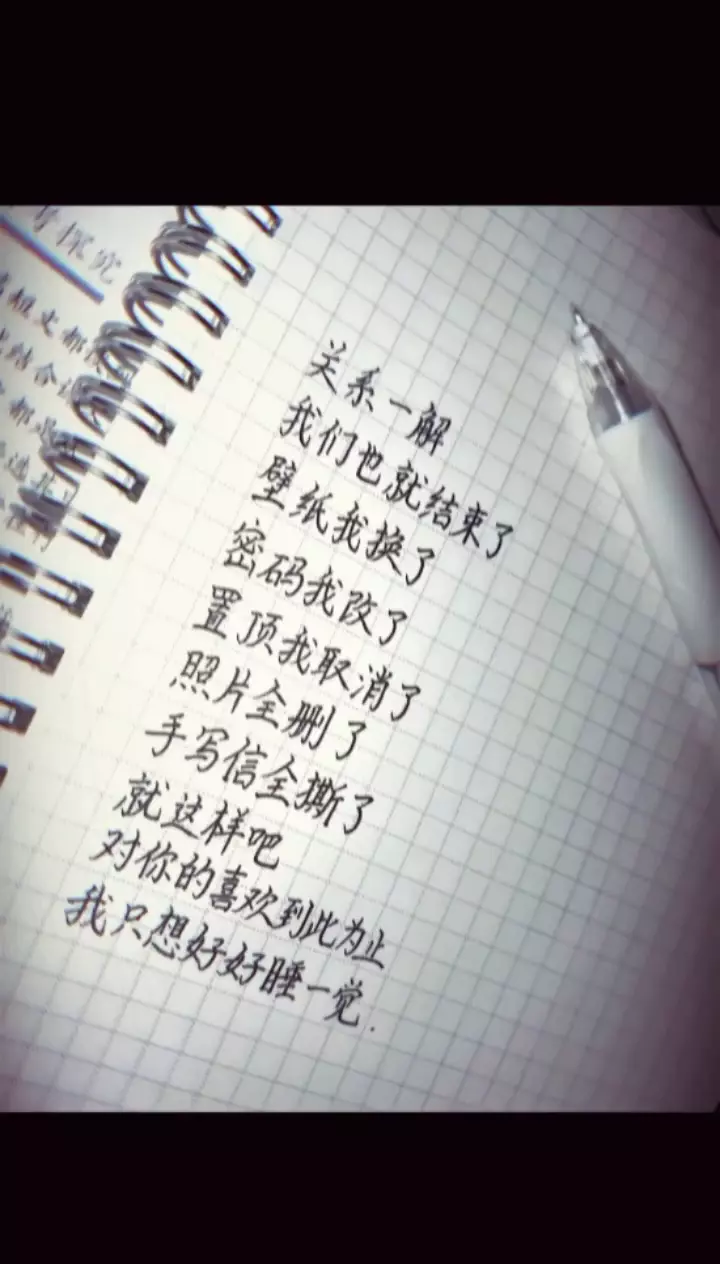 关系一解
我们也就结束了
壁纸我换了
密码我改了
置顶我取消了
照片全删了
手写信全撕了
就这样吧
对你的喜欢到此为止
我只想好好睡一觉.
探究
结合